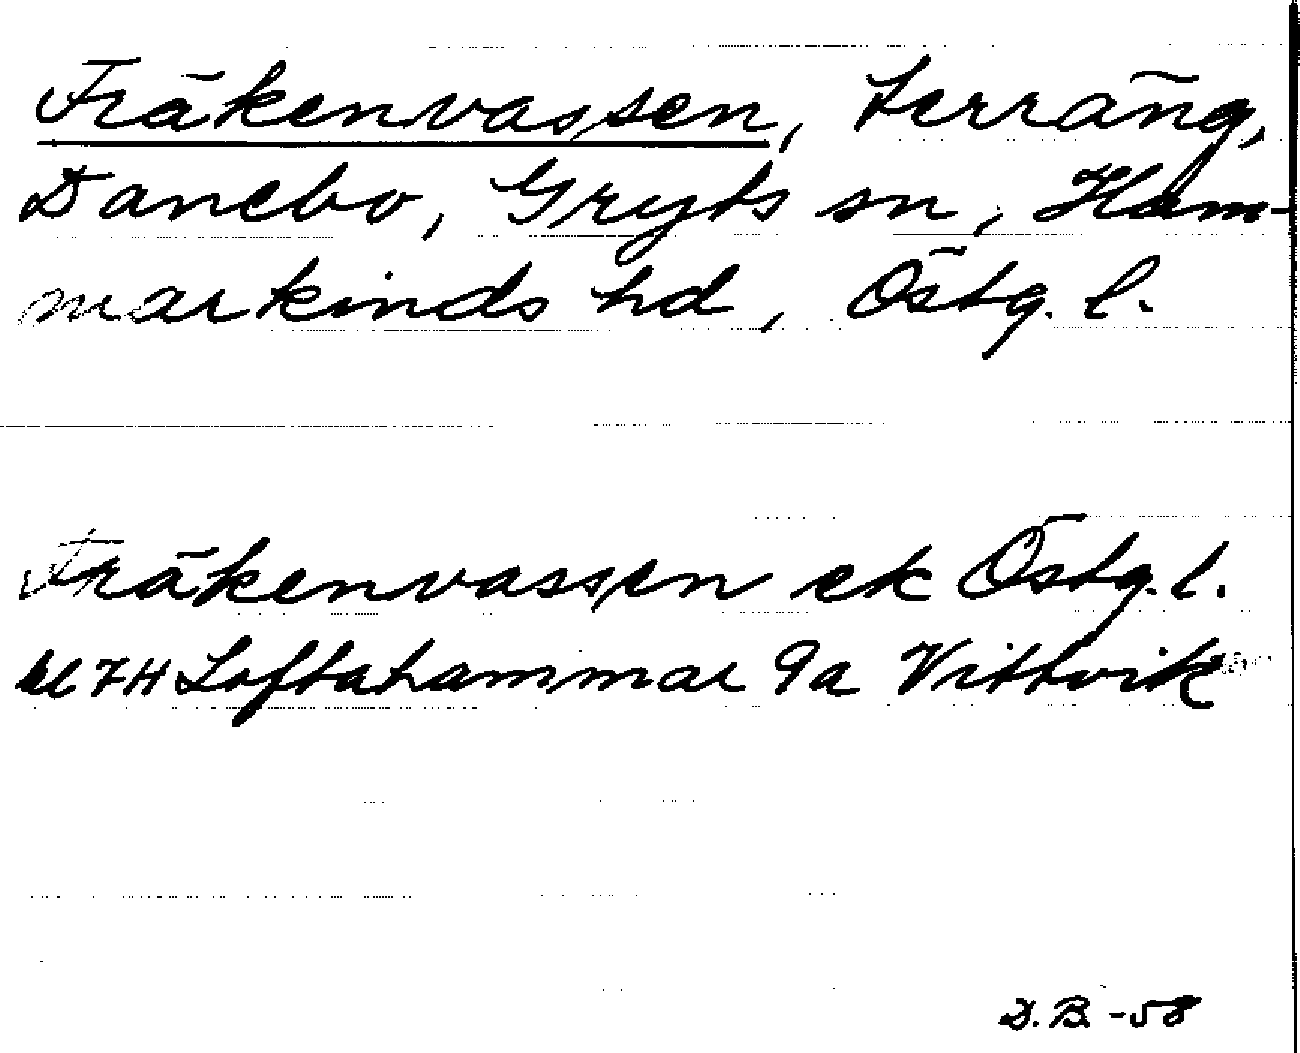 Fräkenvassen, terräng,
Danebo, Gryts sn, Ham-
markinds hd, Östg. l.
Fräkenvassen ek Östg. l.
bl 7H Loftahammar 9a Vittvik
D.B. -58